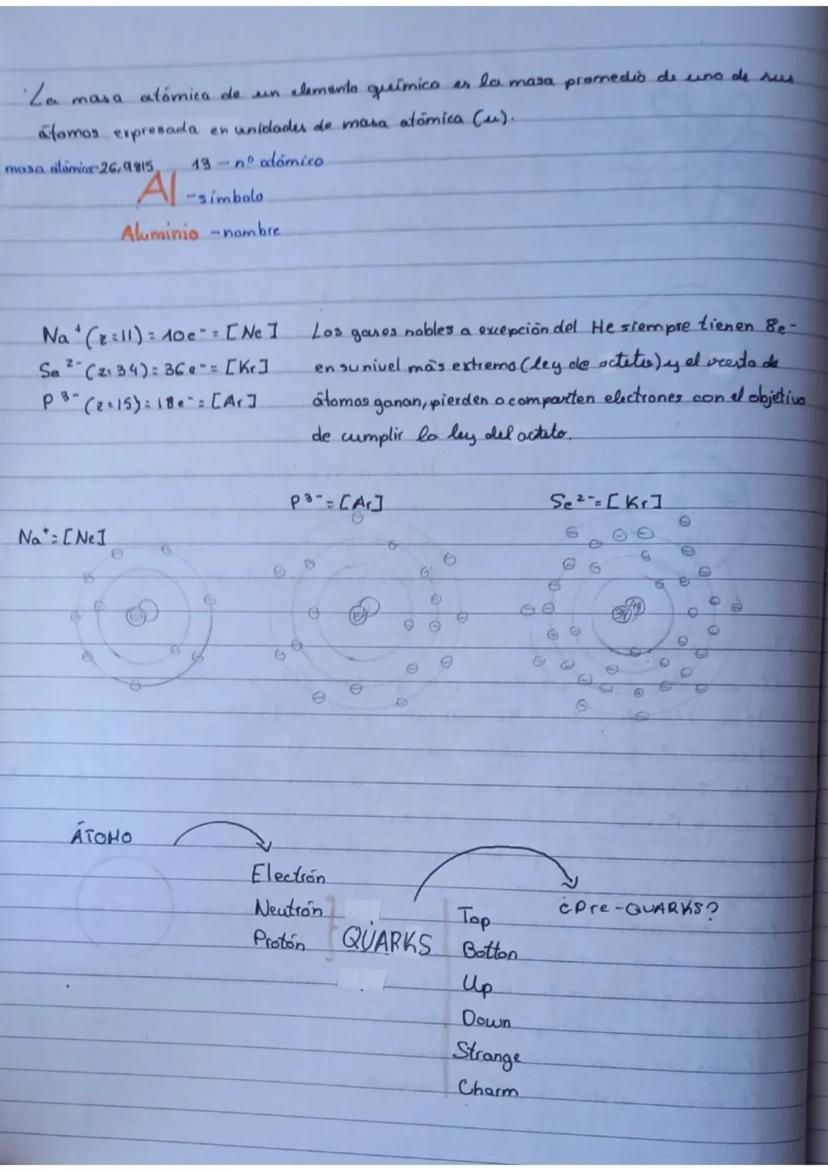 La masa atómica de un elemento químico es la masa promedio de uno de sus
átomos expresada en unidades de masa atómica (u).
masa atómica-26,9815 13 - nº atómico
Al - símbolo
Aluminio - nombre
Na⁺ (z=11) = 10e⁻ = [Ne]
Se²⁻ (z=34) = 36e⁻ = [Kr]
P³⁻ (z=15) = 18e⁻ = [Ar]
Los gases nobles a excepción del He siempre tienen 8e-
en su nivel más extremo (ley de octetos) y el resto de
átomos ganan, pierden o comparten electrones con el objetivo
de cumplir la ley del octeto.
Na⁺ = [Ne]
P³⁻ = [Ar]
Se²⁻ = [Kr]
ÁTOMO
Electrón
Neutrón
Protón
QUARKS
Top
Botton
Up
Down
Strange
Charm
¿Pre-QUARKS?